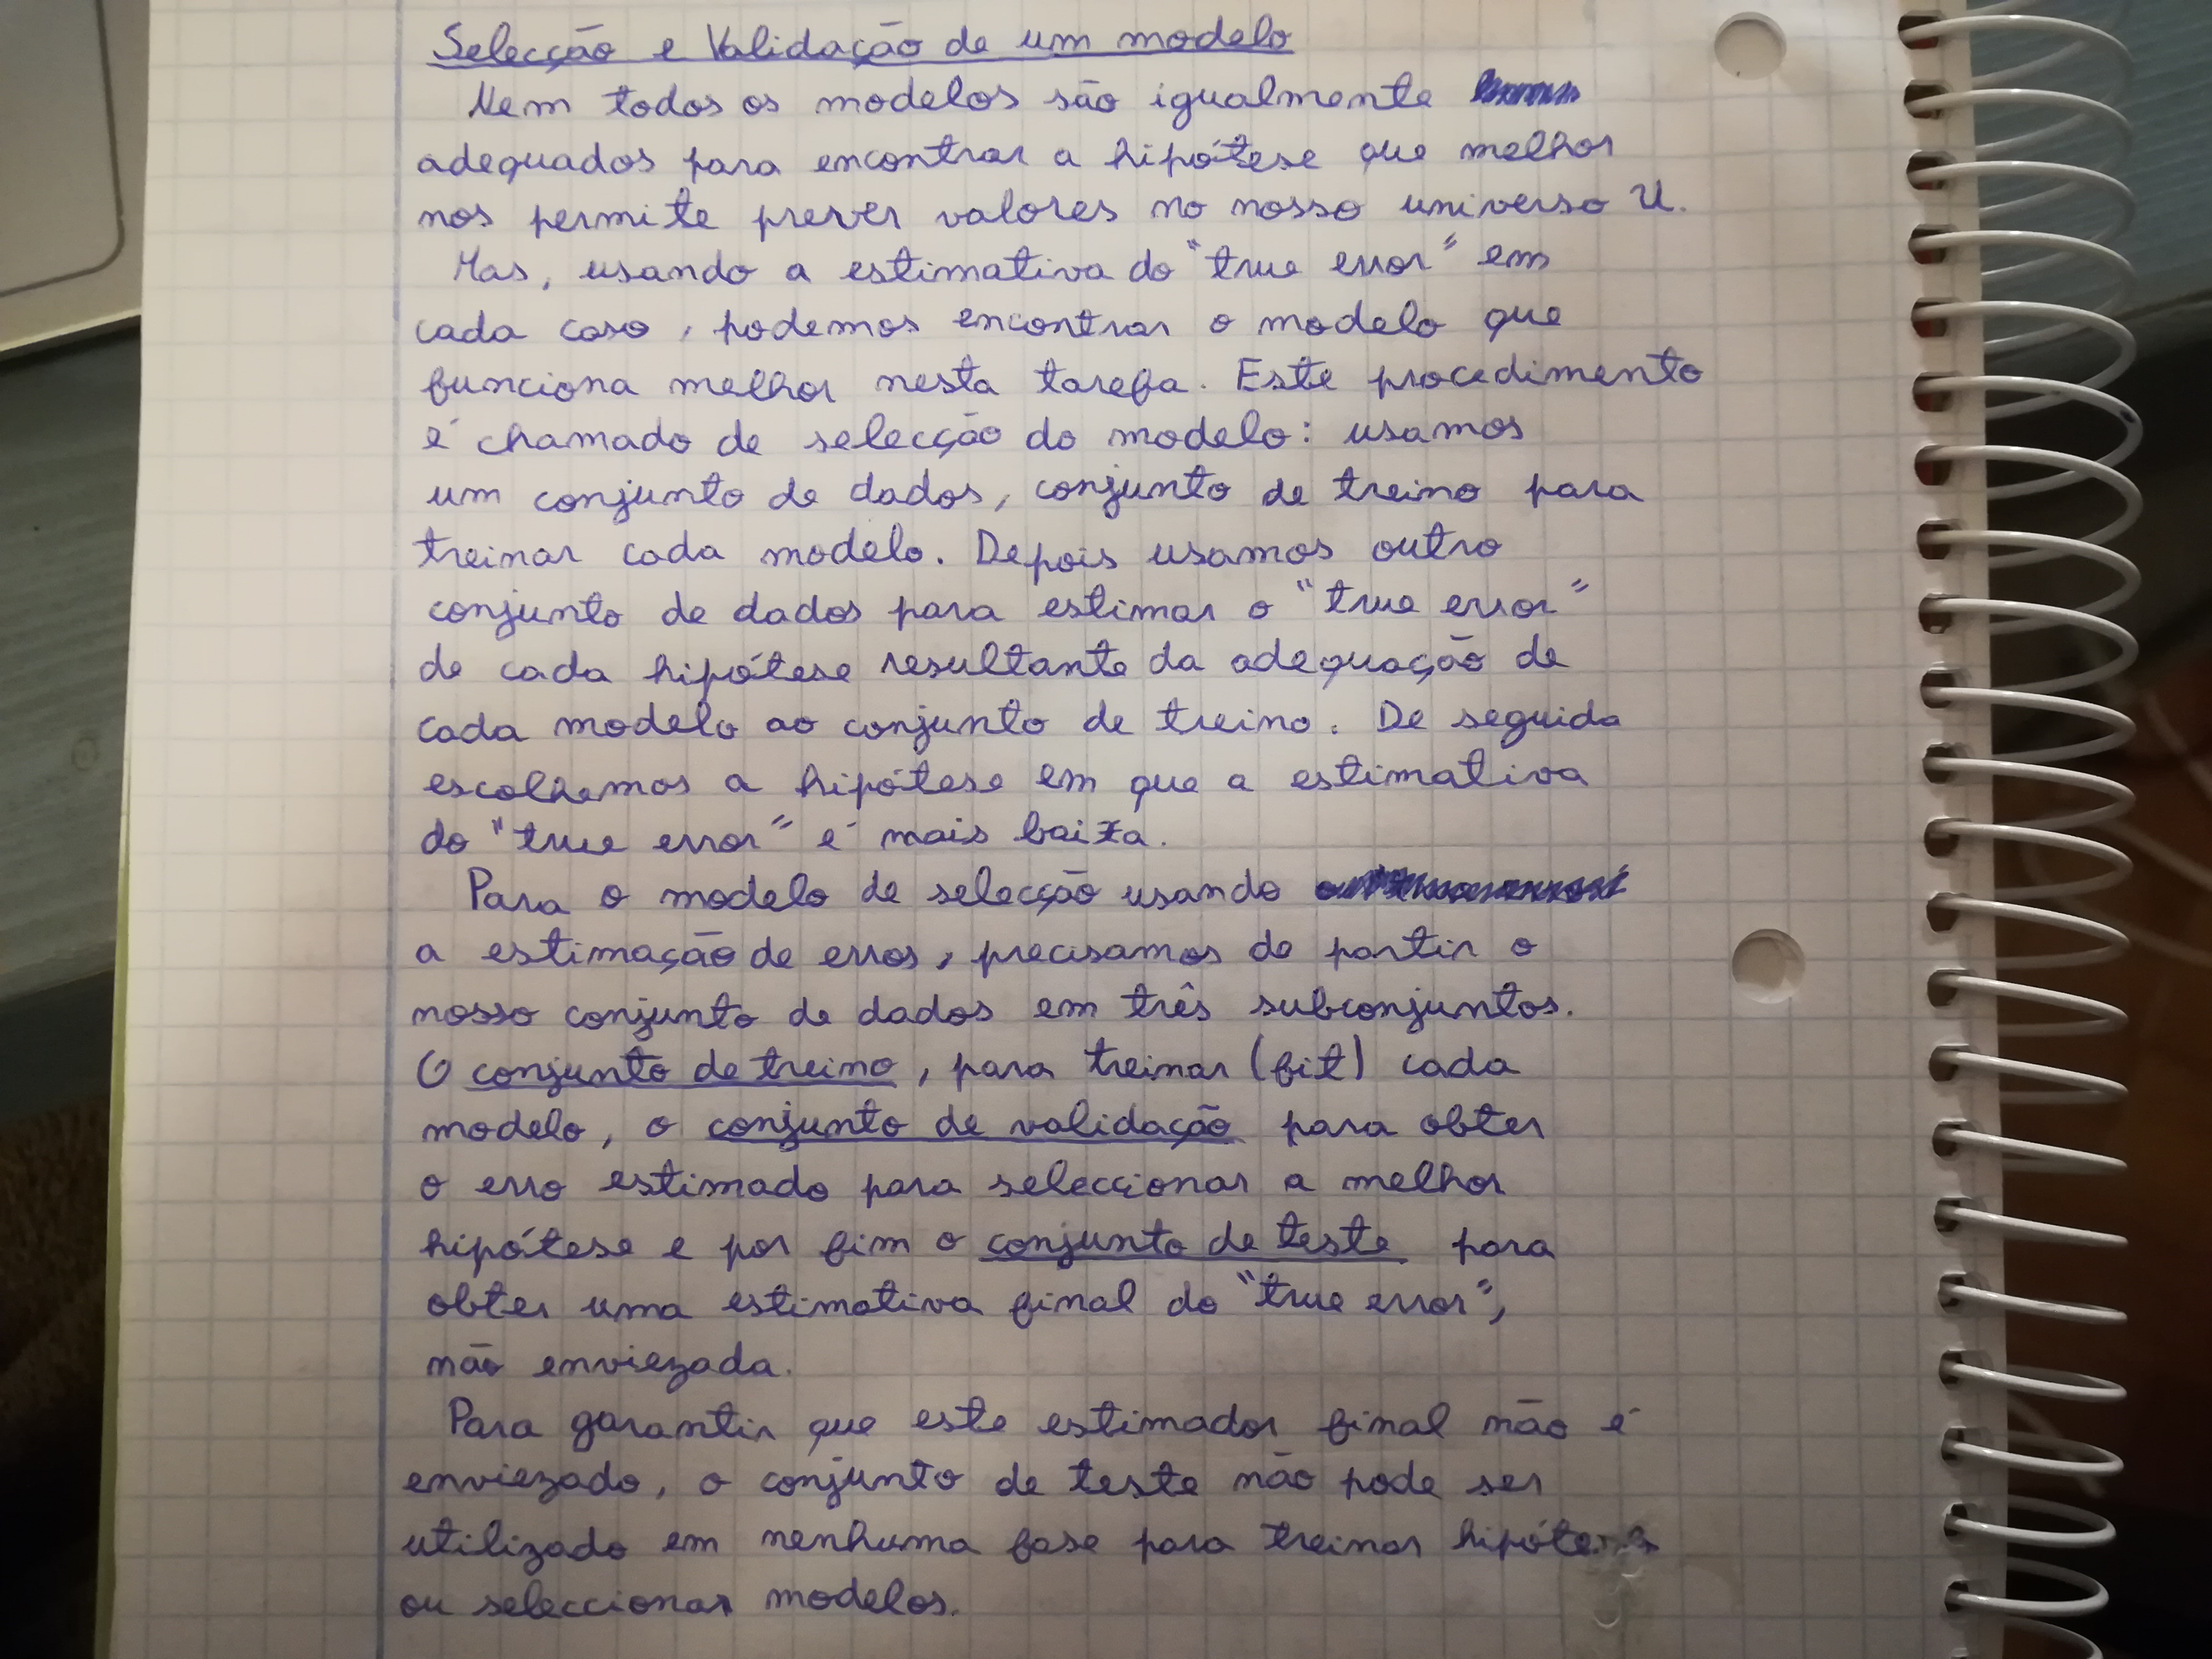 Selecção e Validação de um modelo
Nem todos os modelos são igualmente
adequados para encontrar a hipótese que melhor
nos permite prever valores no nosso universo U.
Mas, usando a estimativa do "true error" em
cada caso, podemos encontrar o modelo que
funciona melhor nesta tarefa. Este procedimento
é chamado de selecção do modelo: usamos
um conjunto de dados, conjunto de treino para
treinar cada modelo. Depois usamos outro
conjunto de dados para estimar o "true error"
de cada hipótese resultante da adequação de
cada modelo ao conjunto de treino. De seguida
escolhemos a hipótese em que a estimativa
do "true error" é mais baixa.
Para o modelo de selecção usando
a estimação de erros, precisamos de partir o
nosso conjunto de dados em três subconjuntos.
O conjunto de treino, para treinar (fit) cada
modelo, o conjunto de validação para obter
o erro estimado para seleccionar a melhor
hipótese e por fim o conjunto de teste para
obter uma estimativa final do "true error",
não enviezada.
Para garantir que este estimador final não é
enviezado, o conjunto de teste não pode ser
utilizado em nenhuma fase para treinar
ou seleccionar modelos.